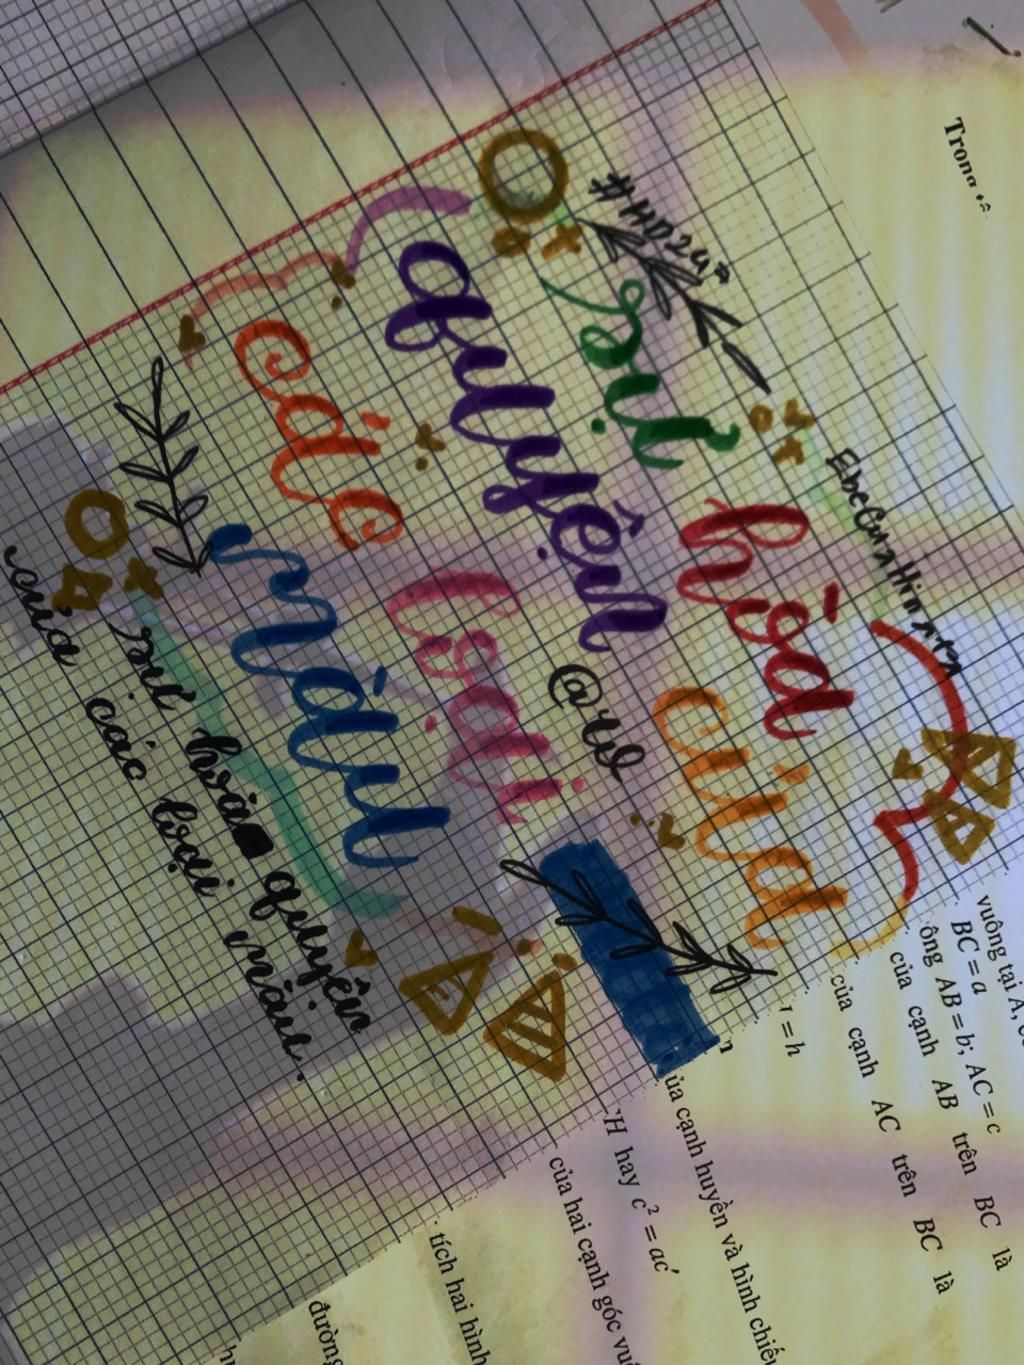 #HD24*
sự hòa
quyện của
các loại
màu
@20
sự hòa quyện
của các loại màu.
Trong
vuông tại A,
BC = a
ông AB = b; AC = c
của cạnh AB trên BC là
của cạnh AC trên BC là
= h
ủa cạnh huyền và hình chiếu
H hay c² = ac'
của hai cạnh góc vu
tích hai hình
đường